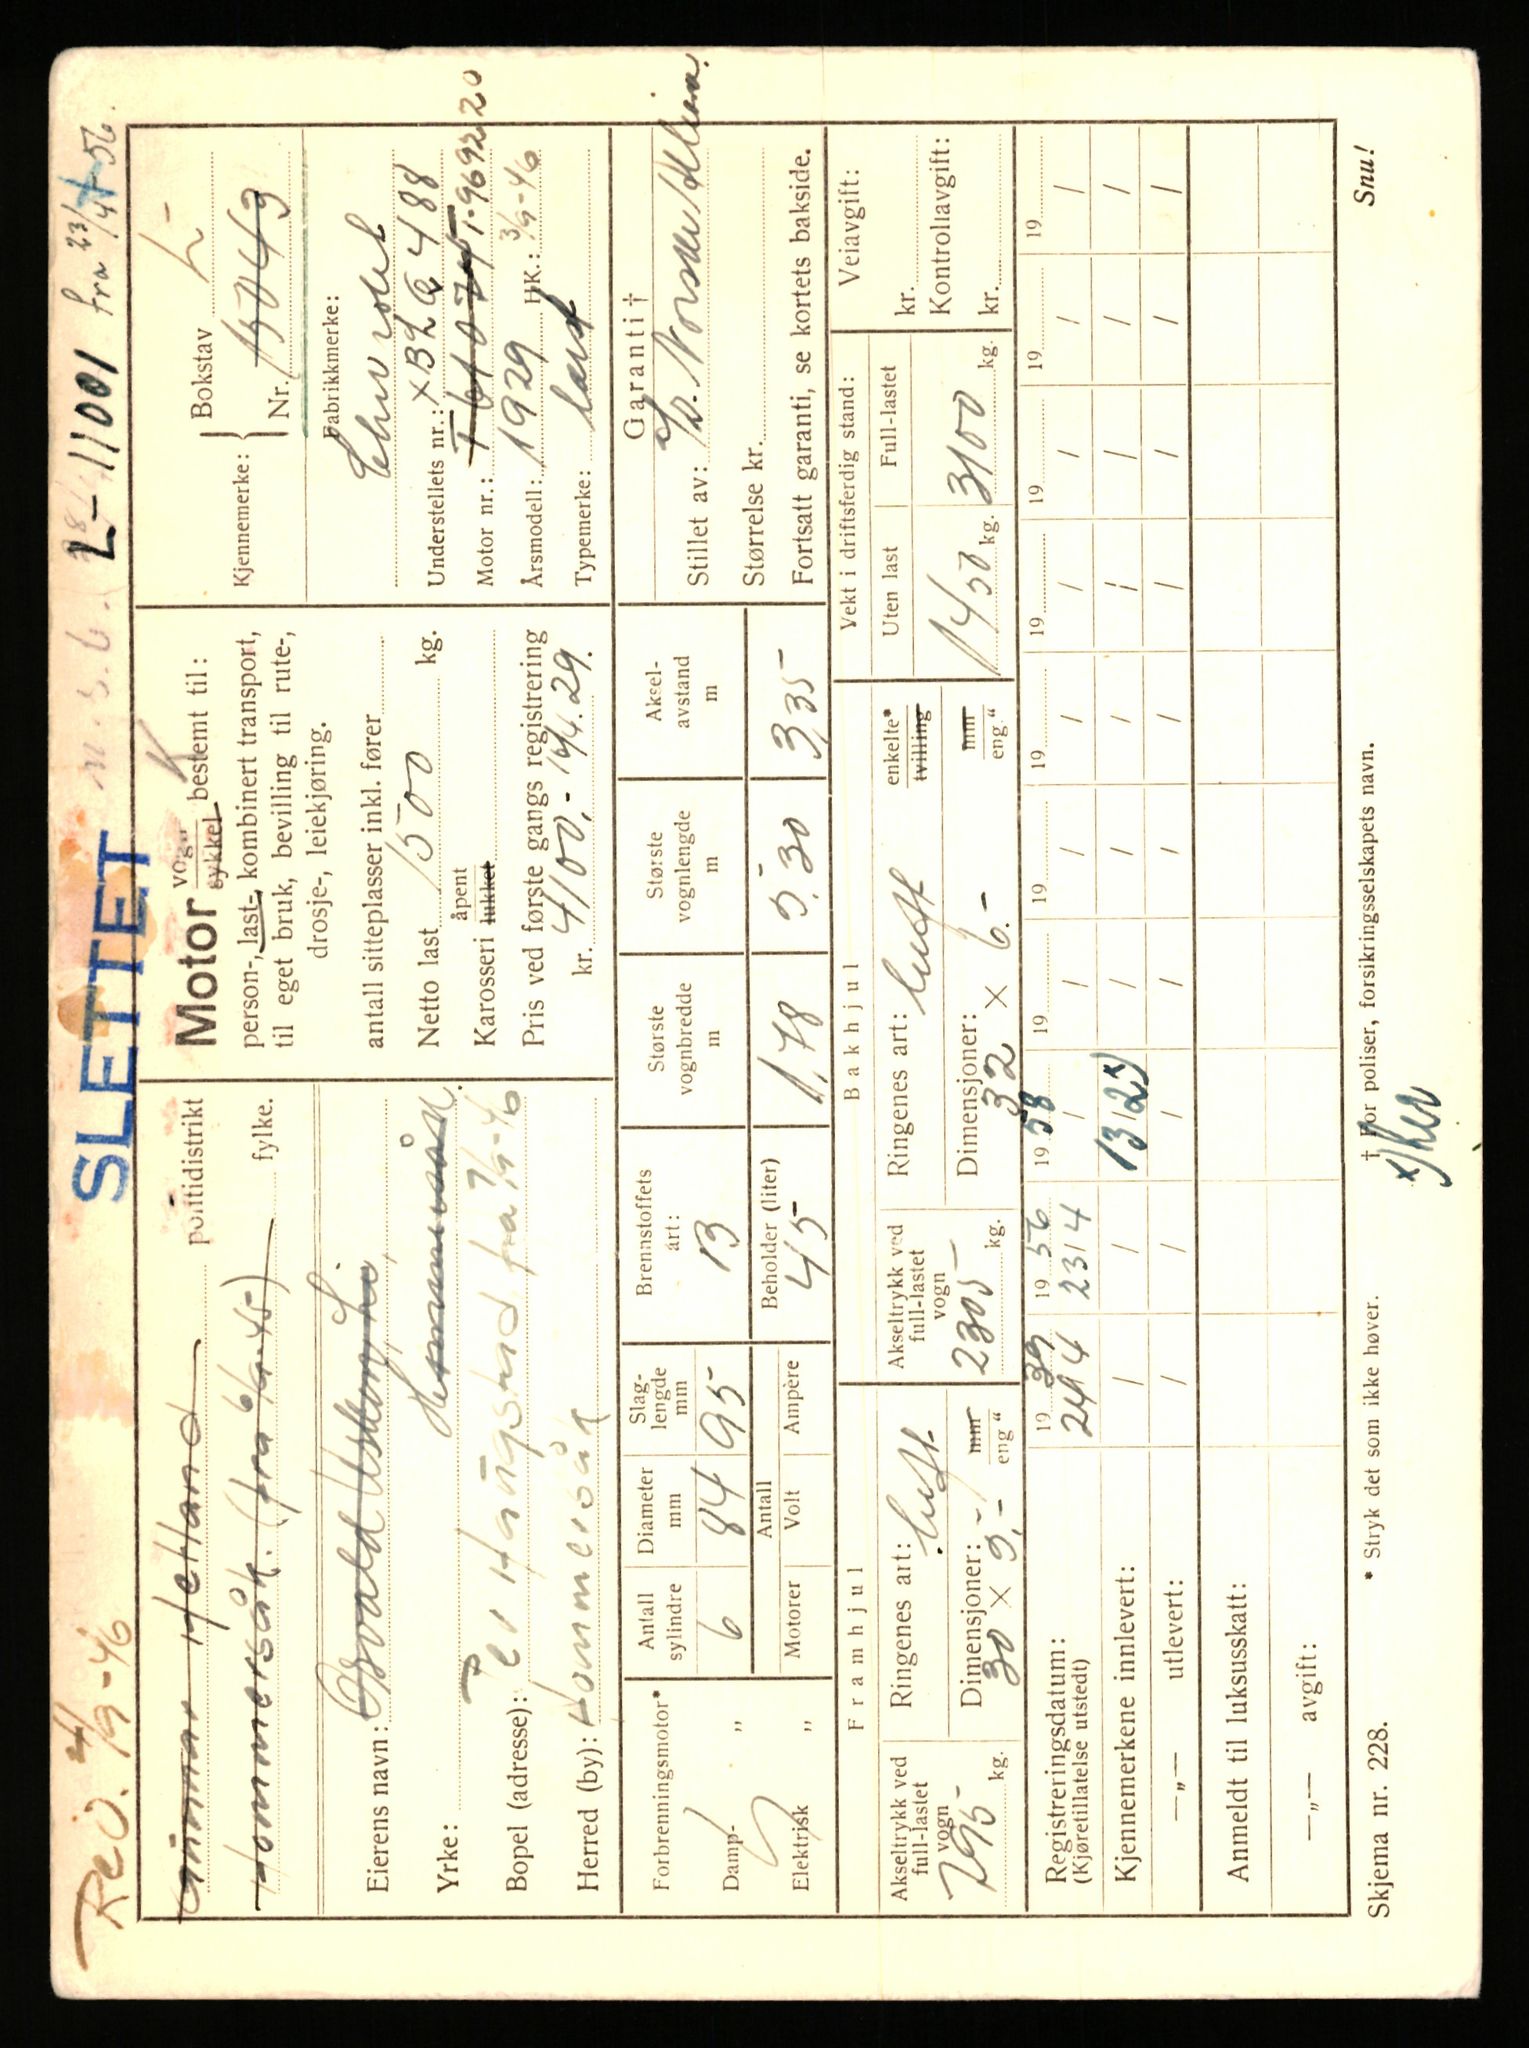 Reg. 4/9-46
SLETTET
L-11001 fra 23/4 56.
Gunnar Hetland politidistrikt
Hommersåk. (fra 6/9.45) fylke.
Eierens navn: Osvald Uskenfri,
Hommersåk.
Yrke:
Bopel (adresse): Hängstad fra 7/9-46
Herred (by): Hommersåk
Motor vogn
sykkel bestemt til: K
person-, last-, kombinert transport,
til eget bruk, bevilling til rute-,
drosje-, leiekjøring.
antall sitteplasser inkl. fører
Netto last 1500 kg.
Karosseri åpent
lukket
Pris ved første gangs registrering
kr. 4100,- 16/4.29.
Kjennemerke: Bokstav L-
Nr. 15049
Fabrikkmerke:
Chevrolet
Understellets nr.: XBLQ488
Motor nr.: T-969220
Årsmodell: 1929 HK.: 3/9-46
Typemerke: last
Forbrenningsmotor*
Damp- „
Elektrisk „
Antall sylindre 6
Diameter mm 84
Slaglengde mm 95
Motorer
Antall
Volt
Ampère
Brennstoffets art: B
Beholder (liter) 45
Største vognbredde m 1,78
Største vognlengde m 5,30
Akselavstand m 3,35
Garanti †
Stillet av: A/S. Norske Alliance.
Størrelse kr.
Fortsatt garanti, se kortets bakside.
Framhjul
Akseltrykk ved full-lastet vogn 795 kg.
Ringenes art: luft
Dimensjoner: mm
30 × 5.- eng“
Bakhjul
Akseltrykk ved full-lastet vogn 2305 kg.
Ringenes art: luft enkelte*
tvilling
Dimensjoner: mm
32 × 6.- eng“
Vekt i driftsferdig stand:
Uten last 1450 kg.
Full-lastet 3100 kg.
Veiavgift:
kr.
Kontrollavgift:
kr.
Registreringsdatum: 1939 1956 1958 19 19 19 19 19 19 19
(Kjøretillatelse utstedt) 24/4 23/4 / / / / / / / /
Kjennemerkene innlevert: / / 13/2x) / / / / / / /
—„— utlevert: / / / / / / / / / /
Anmeldt til luksusskatt:
—„— avgift:
Skjema nr. 228.
* Stryk det som ikke høver.
† For poliser, forsikringsselskapets navn.
Snu!